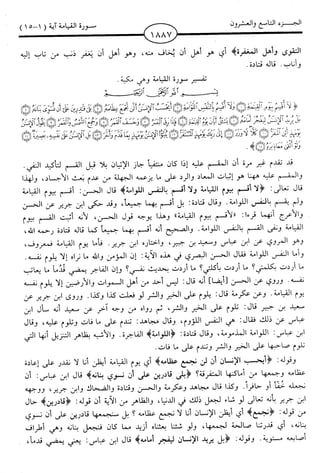 الجزء التاسع والعشرون
سورة القيامة آية (١ - ١٥)
١٨٨٧
التقوى وأهل المغفرة﴾ أي هو أهل أن يُخاف منه، وهو أهل أن يَغفر ذنب من تاب إليه
وأناب. قاله قتادة.
تفسير سورة القيامة وهي مكية.
قد تقدم غير مرة أن المقسم عليه إذا كان منتفياً جاز الإتيان بلا قبل القسم لتأكيد النفي
والمقسم عليه ههنا هو إثبات المعاد والرد على ما يزعمه الجهلة من عدم بعث الأجساد، ولهذا
قال تعالى: ﴿لا أقسم بيوم القيامة ولا أقسم بالنفس اللوامة﴾ قال الحسن: أقسم بيوم القيامة
ولم يقسم بالنفس اللوامة. وقال قتادة: بل أقسم بهما جميعاً، وقد حكى ابن جرير عن الحسن
والأعرج أنهما قرءا: «لأقسم بيوم القيامة» وهذا يوجه قول الحسن، لأنه أثبت القسم بيوم
القيامة ونفى القسم بالنفس اللوامة. والصحيح أنه أقسم بهما جميعاً كما قاله قتادة رحمه الله،
وهو المروي عن ابن عباس وسعيد بن جبير، واختاره ابن جرير. فأما يوم القيامة فمعروف،
وأما النفس اللوامة فقال الحسن البصري في هذه الآية: إن المؤمن والله ما نراه إلا يلوم نفسه.
ما أردت بكلمتي؟ ما أردت بأكلتي؟ ما أردت بحديث نفسي؟ وإن الفاجر يمضي قُدُماً ما يعاتب
نفسه. وروي عن الحسن [أيضاً] أنه قال: ليس أحد من أهل السموات والأرضين إلا يلوم نفسه
يوم القيامة. وعن عكرمة قال: يلوم على الخير والشر لو فعلت كذا وكذا. وروى ابن جرير عن
سعيد بن جبير قال: تلوم على الخير والشر، ثم رواه من وجه آخر عن سعيد أنه سأل ابن
عباس عن ذلك فقال: هي النفس اللؤوم، وقال مجاهد: تندم على ما فات وتلوم عليه، وقال
ابن عباس: اللوامة المذمومة، وقال قتادة: ﴿اللوامة﴾ الفاجرة. والأشبه بظاهر التنزيل أنها التي
تلوم صاحبها على الخير والشر وتندم على ما فات.
وقوله: ﴿أيحسب الإنسان أن لن نجمع عظامه﴾ أي يوم القيامة أيظن أنا لا نقدر على إعادة
عظامه وجمعها من أماكنها المتفرقة؟ ﴿بلى قادرين على أن نسوي بنانه﴾ قال ابن عباس: أن
نجعله خُفّاً أو حافراً. وكذا قال مجاهد وعكرمة والحسن وقتادة والضحاك وابن جرير، ووجهه
ابن جرير بأنه تعالى لو شاء لجعل ذلك في الدنيا، والظاهر من الآية أن قوله: ﴿قادرين﴾ حال
من قوله: ﴿نجمع﴾ أي أيظن الإنسان أنا لا نجمع عظامه؟ بل سنجمعها قادرين على أن نسوي
بنانه، أي قدرتنا صالحة لجمعها، ولو شئنا بعثناه أزيد مما كان فنجعل بنانه وهي أطراف
أصابعه مستوية. وقوله: ﴿بل يريد الإنسان ليفجر أمامه﴾ قال ابن عباس: يعني يمضي قدماً،